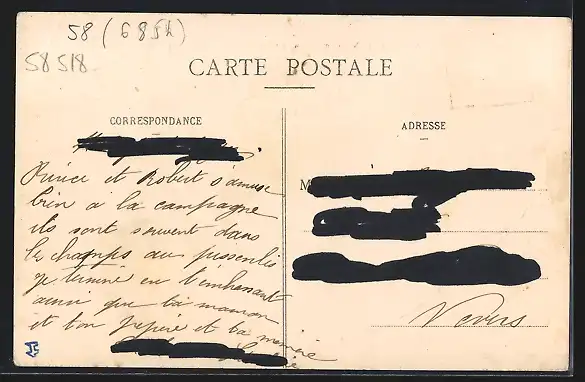 58 (685h)
58518
CARTE POSTALE
CORRESPONDANCE
ADRESSE
M
Prince et Robert s'amuse
bien a la campagne
ils sont souvent dans
le champs au pissenlis
je termine en t'embrassant
ainsi que ta maman
et ton pépère et ta mémère
Nevers